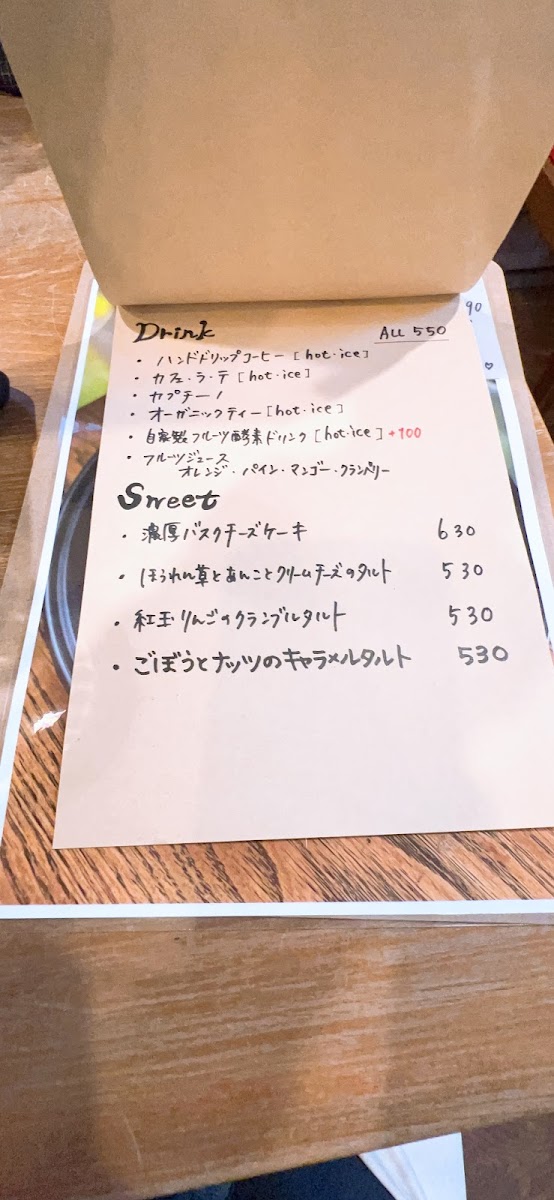 90
Drink ALL 550
・ハンドドリップコーヒー [hot・ice]
・カフェ・ラ・テ [hot・ice]
・カプチーノ
・オーガニックティー [hot・ice]
・自家製フルーツ酵素ドリンク [hot・ice] +100
・フルーツジュース
オレンジ・パイン・マンゴー・クランベリー
Sweet
・濃厚バスクチーズケーキ 630
・ほうれん草とあんことクリームチーズのタルト 530
・紅玉りんごのクランブルタルト 530
・ごぼうとナッツのキャラメルタルト 530